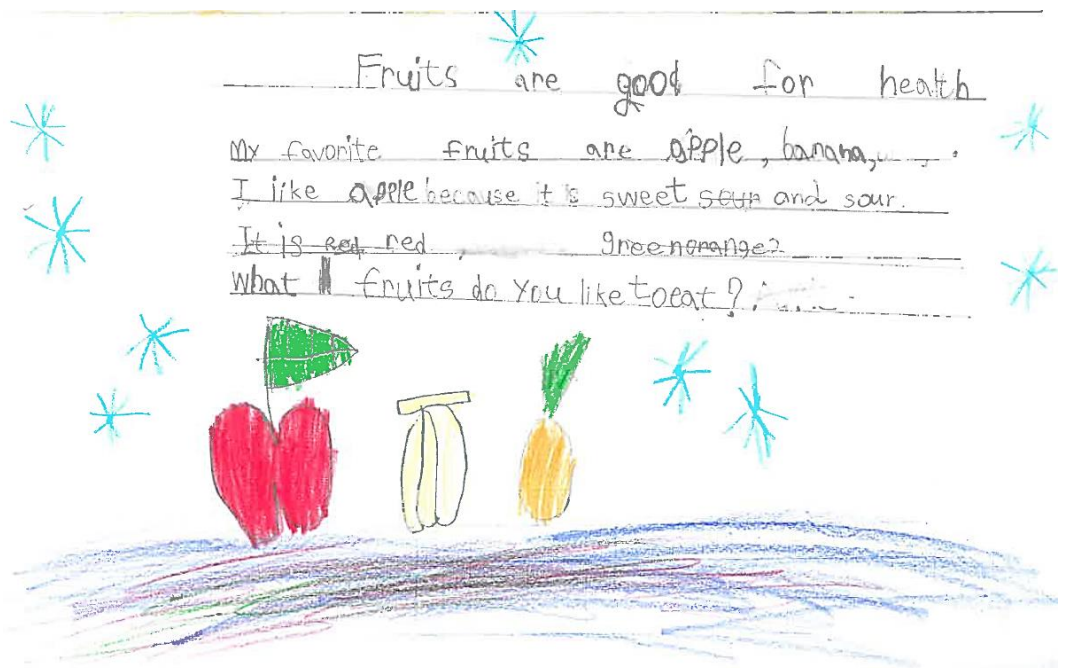 Fruits are good for health
My favorite fruits are apple, banana, .
I like apple because it is sweet sour and sour.
It is Red red, green orange?
What fruits do you like to eat?